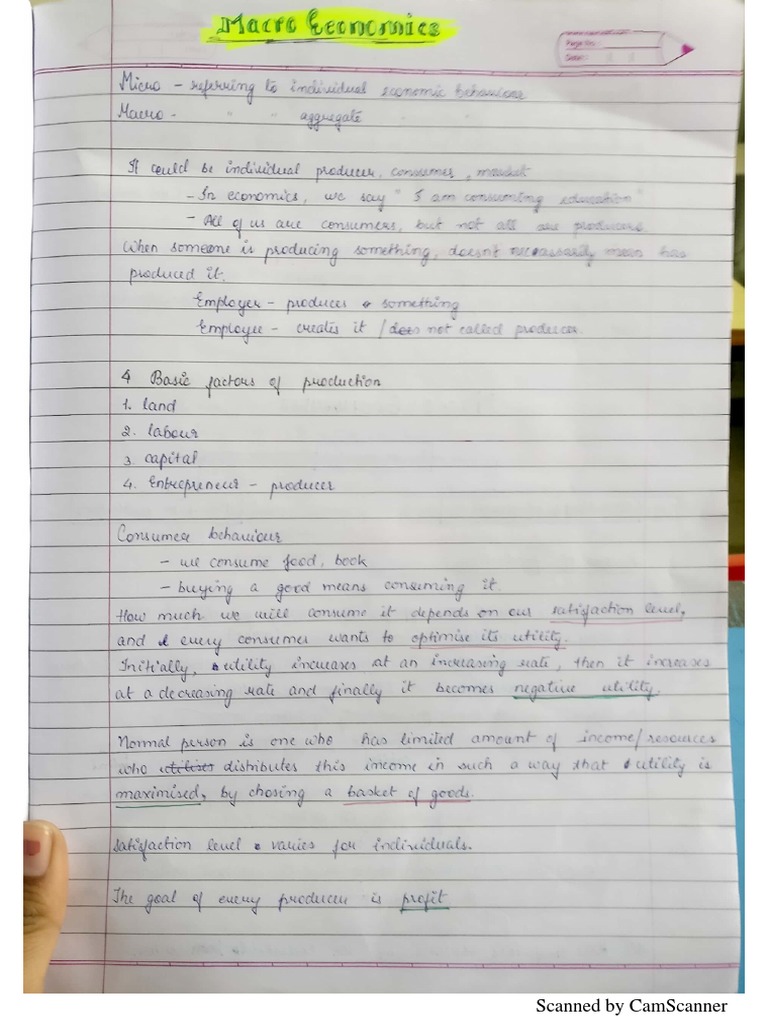 Macro Economics
Page No.
Date:
Micro - referring to individual economic behaviour
Macro - " " aggregate " "
It could be individual producer, consumer, market
- In economics, we say " I am consuming education"
- All of us are consumers, but not all are producers.
When someone is producing something, doesn't necessarily mean has
produced it.
Employer - produces something
Employee - creates it / does not called producer.
4 Basic factors of production
1. land
2. labour
3. capital
4. Entrepreneur - producer
Consumer behaviour
- we consume food, book
- buying a good means consuming it.
How much we will consume it depends on our satisfaction level,
and every consumer wants to optimise its utility.
Initially, utility increases at an increasing rate, then it increases
at a decreasing rate and finally it becomes negative utility.
Normal person is one who has limited amount of income/resources
who utilises distributes this income in such a way that utility is
maximised, by chosing a basket of goods.
Satisfaction level varies for individuals.
The goal of every producer is profit
Scanned by CamScanner